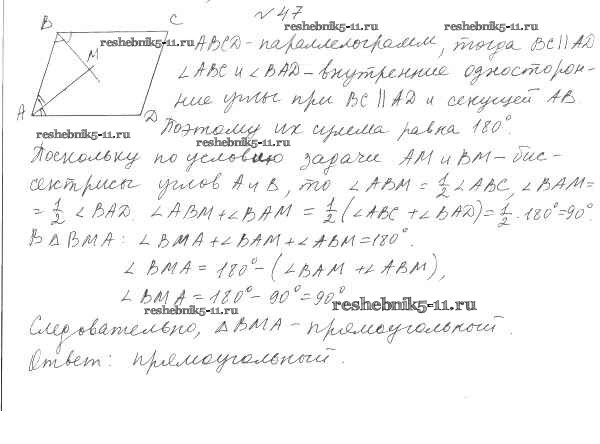 № 47
B C
reshebnik5-11.ru reshebnik5-11.ru
reshebnik5-11.ru
M
ABCD - параллелограмм, тогда BC || AD
∠ABC и ∠BAD - внутренние односторон-
ние углы при BC || AD и секущей AB.
A D
reshebnik5-11.ru
Поэтому их сумма равна 180°.
reshebnik5-11.ru
Поскольку по условию задачи AM и BM - бис-
сектрисы углов A и B, то ∠ABM = 1/2 ∠ABC, ∠BAM =
= 1/2 ∠BAD. ∠ABM + ∠BAM = 1/2 (∠ABC + ∠BAD) = 1/2 · 180° = 90°.
В △ BMA: ∠BMA + ∠BAM + ∠ABM = 180°.
∠BMA = 180° - (∠BAM + ∠ABM),
∠BMA = 180° - 90° = 90°
reshebnik5-11.ru reshebnik5-11.ru
Следовательно, △BMA - прямоугольный.
Ответ: прямоугольный.